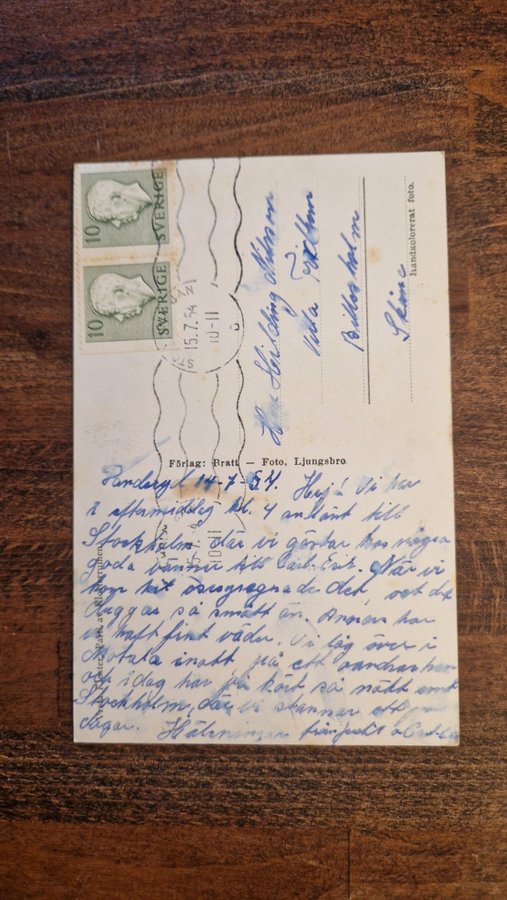 SVERIGE
10
SVERIGE
10
15.7.54
10-11
Hilding Nilsson
Villa
Billesholm
Skåne
Handkolorerat foto.
Förlag: Bratt — Foto, Ljungsbro
14-7-54. Hej! Vi har
i eftermiddag kl. 4 anlänt till
Stockholm där vi gästar hos några
goda vänner till Carl-Erik. När vi
kom hit ösregnade det och det
duggar så smått än. Annars har
vi haft fint väder. Vi låg över i
Motala inatt på ett vandrarhem
och idag har vi kört så sakt emot
Stockholm, där vi stannar ett par
dagar. Hälsningar från